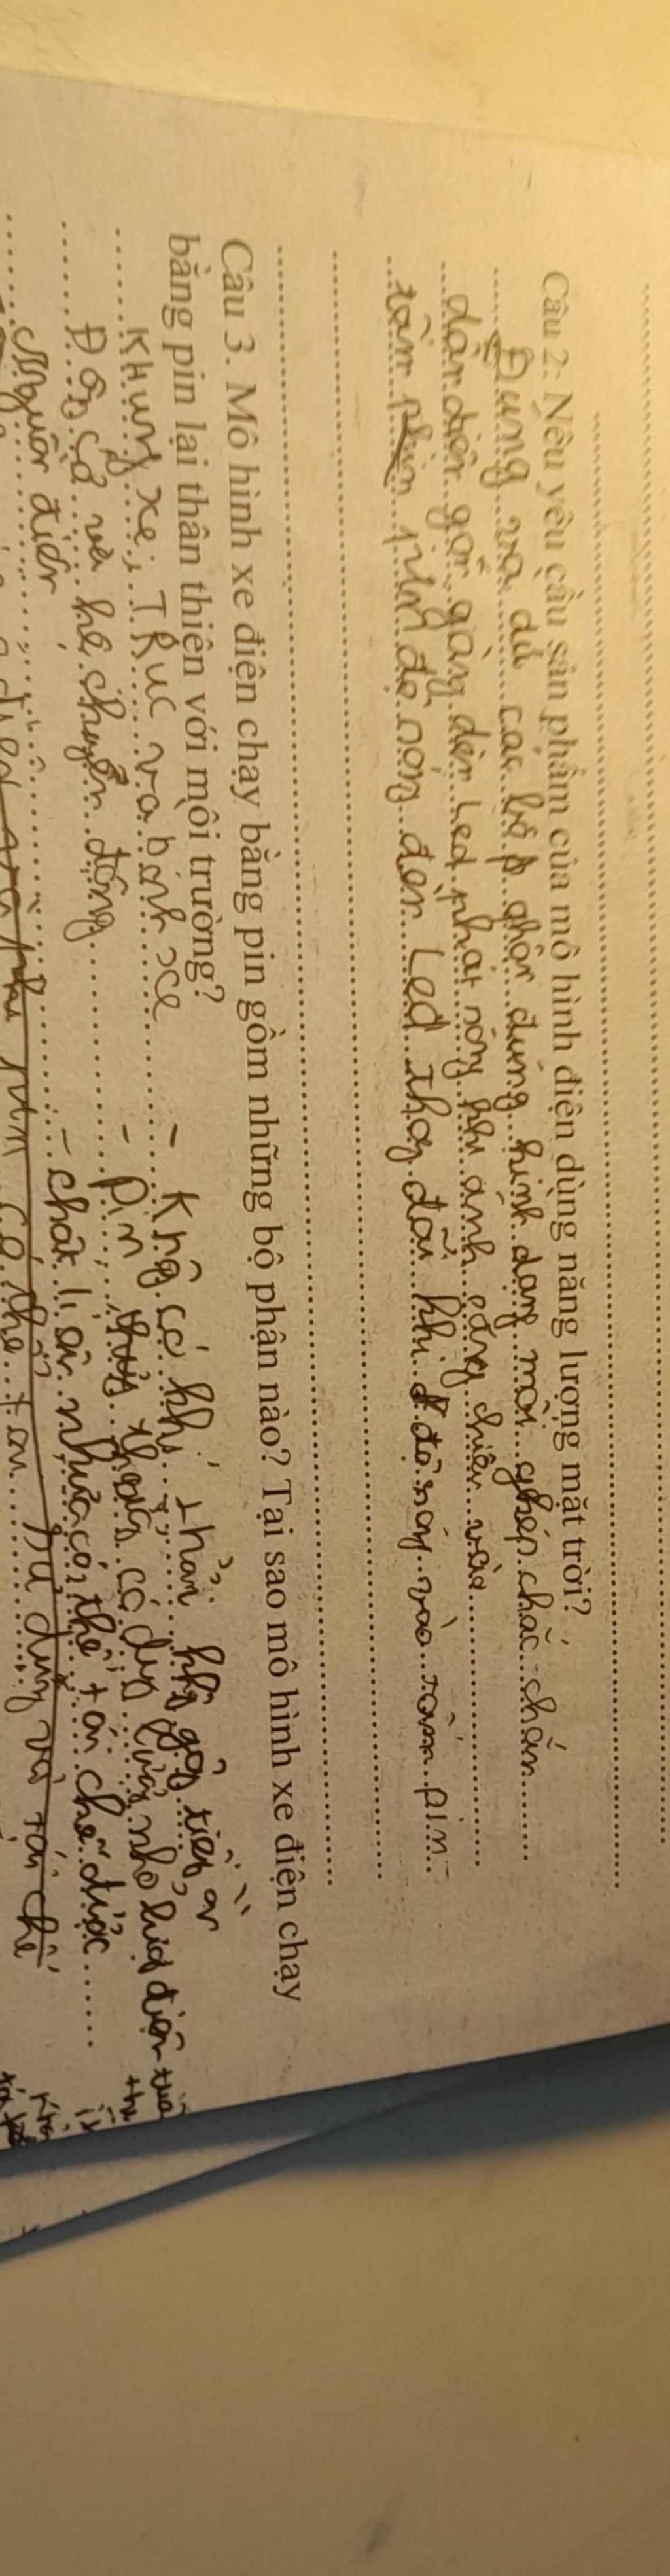 Câu 2: Nêu yêu cầu sản phẩm của mô hình điện dùng năng lượng mặt trời?
Đung va đủ các bộ p ghận đúng hinh dang mối ghép chắc chắn
dây điện gọn gàng đèn Led phát sáng khi anh sáng chiếu vào
tấm pin độ sáng đèn Led thay đổi khi độ nóng vào tấm pin
Câu 3. Mô hình xe điện chạy bằng pin gồm những bộ phận nào? Tại sao mô hình xe điện chạy
bằng pin lại thân thiện với môi trường?
Khung xe, Truc va banh xe - Kng có khí thải kng gây tiếng ồn
Động cơ và hệ chuyển động - Pin thường có dung lượng nhỏ điện
Nguồn điện - chất liệu nhựa có thể tái chế được